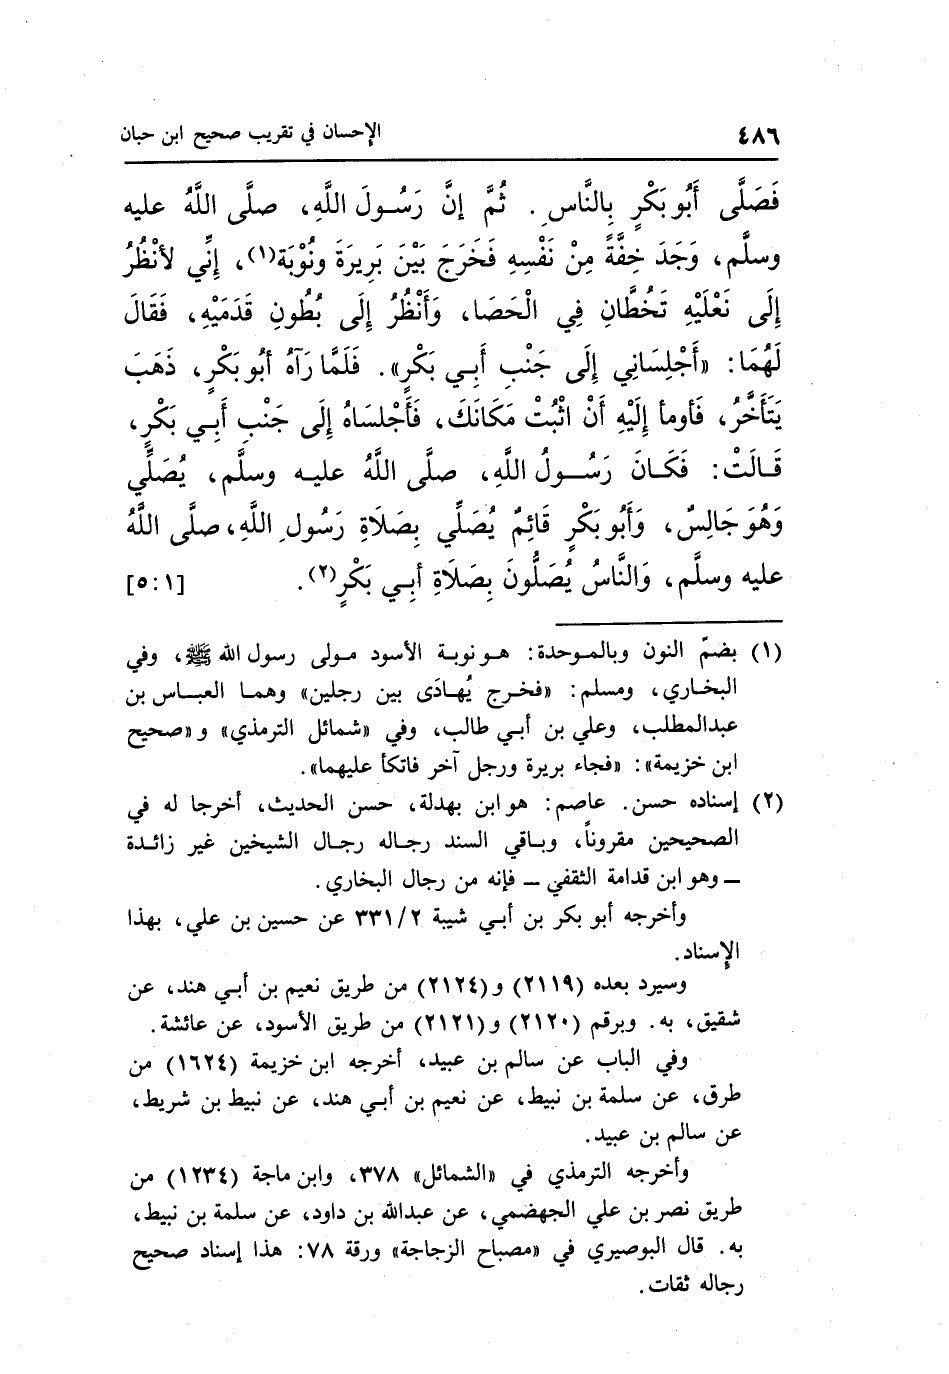 ٤٨٦ الإحسان في تقريب صحيح ابن حبان
فَصَلَّى أَبُو بَكْرٍ بِالنَّاسِ. ثُمَّ إِنَّ رَسُولَ اللَّهِ، صلَّى اللَّهُ عليه
وسلَّم، وَجَدَ خِفَّةً مِنْ نَفْسِهِ فَخَرَجَ بَيْنَ بَرِيرَةَ ونُوْبَة(١)، إِنِّي لأَنْظُرُ
إِلَى نَعْلَيْهِ تَخُطَّانِ فِي الْحَصَا، وَأَنْظُرُ إِلَى بُطُونِ قَدَمَيْهِ، فَقَالَ
لَهُمَا: «أَجْلِسَانِي إِلَى جَنْبِ أَبِي بَكْرٍ». فَلَمَّا رَآهُ أَبُو بَكْرٍ، ذَهَبَ
يَتَأَخَّرُ، فَأومأ إِلَيْهِ أَنْ اثْبُتْ مَكَانَكَ، فَأَجْلسَاهُ إِلَى جَنْبِ أَبِي بَكْرٍ،
قَالَتْ: فَكَانَ رَسُولُ اللَّهِ، صلَّى اللَّهُ عليه وسلَّم، يُصَلِّي
وَهُوَ جَالِسٌ، وَأَبُو بَكْرٍ قَائِمٌ يُصَلِّي بِصَلَاةِ رَسُولِ اللَّهِ، صلَّى اللَّهُ
عليه وسلَّم، وَالنَّاسُ يُصَلُّونَ بِصَلَاةِ أبِي بَكْرٍ(٢). [٥:١]
(١) بضمّ النون وبالموحدة: هو نوبة الأسود مولى رسول الله ﷺ، وفي
البخاري، ومسلم: «فخرج يُهادَى بين رجلين» وهما العباس بن
عبدالمطلب، وعلي بن أبي طالب، وفي «شمائل الترمذي» و«صحيح
ابن خزيمة»: «فجاء بريرة ورجل آخر فاتكأ عليهما».
(٢) إسناده حسن. عاصم: هو ابن بهدلة، حسن الحديث، أخرجا له في
الصحيحين مقروناً، وباقي السند رجاله رجال الشيخين غير زائدة
ــ وهو ابن قدامة الثقفي ــ فإنه من رجال البخاري.
وأخرجه أبو بكر بن أبي شيبة ٣٣١/٢ عن حسين بن علي، بهذا
الإسناد.
وسيرد بعده (٢١١٩) و(٢١٢٤) من طريق نعيم بن أبي هند، عن
شقيق، به. وبرقم (٢١٢٠) و(٢١٢١) من طريق الأسود، عن عائشة.
وفي الباب عن سالم بن عبيد، أخرجه ابن خزيمة (١٦٢٤) من
طرق، عن سلمة بن نبيط، عن نعيم بن أبي هند، عن نبيط بن شريط،
عن سالم بن عبيد.
وأخرجه الترمذي في «الشمائل» ٣٧٨، وابن ماجة (١٢٣٤) من
طريق نصر بن علي الجهضمي، عن عبدالله بن داود، عن سلمة بن نبيط،
به. قال البوصيري في «مصباح الزجاجة» ورقة ٧٨: هذا إسناد صحيح
رجاله ثقات.